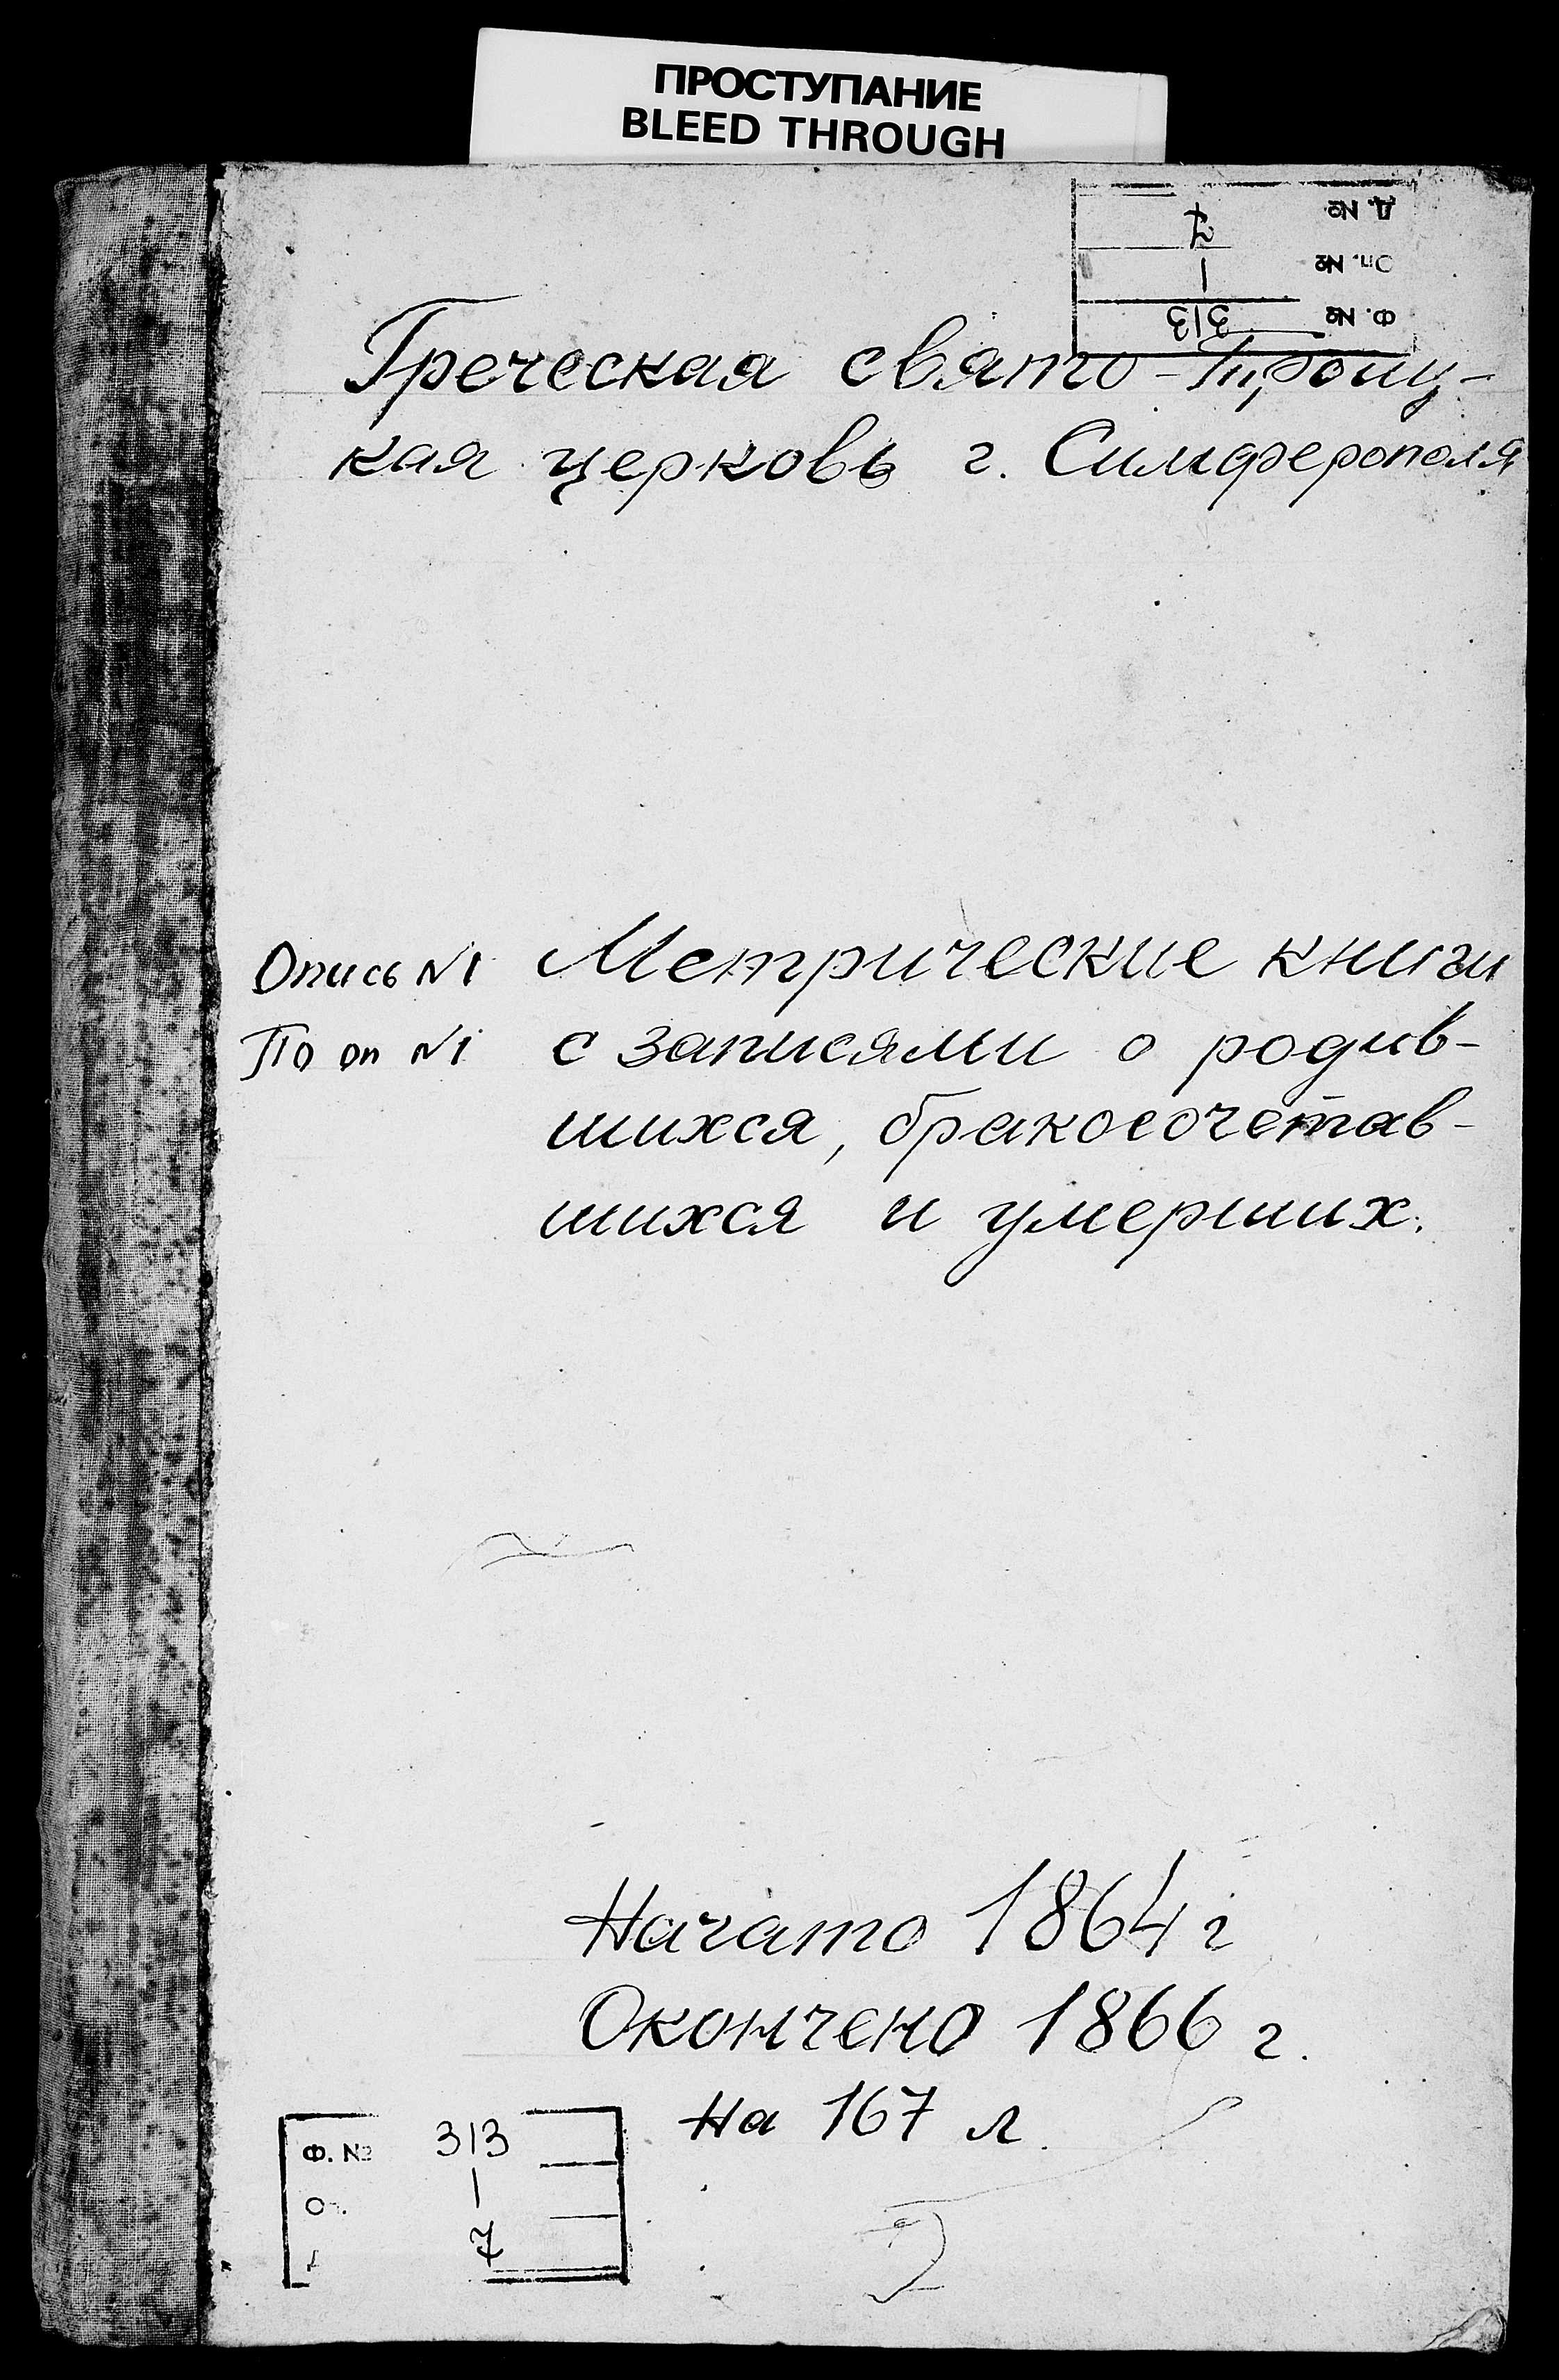 ПРОСТУПАНИЕ
BLEED THROUGH
Д. № 7
Оп. № 1
Ф. № 313
Греческая свято-Троиц-
кая церковь г. Симферополя
Опись №1
По оп №1
Метрические книги
с записями о родив-
шихся, бракосочетав-
шихся и умерших.
Начато 1864 г
Окончено 1866 г.
На 167 л.
Ф. № 313
1
7